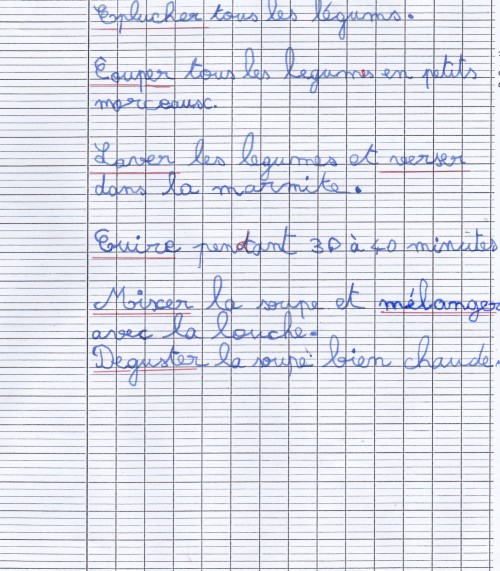 Eplucher tous les légums.
Couper tous les legumes en petits
morceaux.
Laver les legumes et verser
dans la marmite.
Cuire pendant 30 à 40 minutes
Mixer la soupe et mélanger
avec la louche.
Deguster la soupe bien chaude.